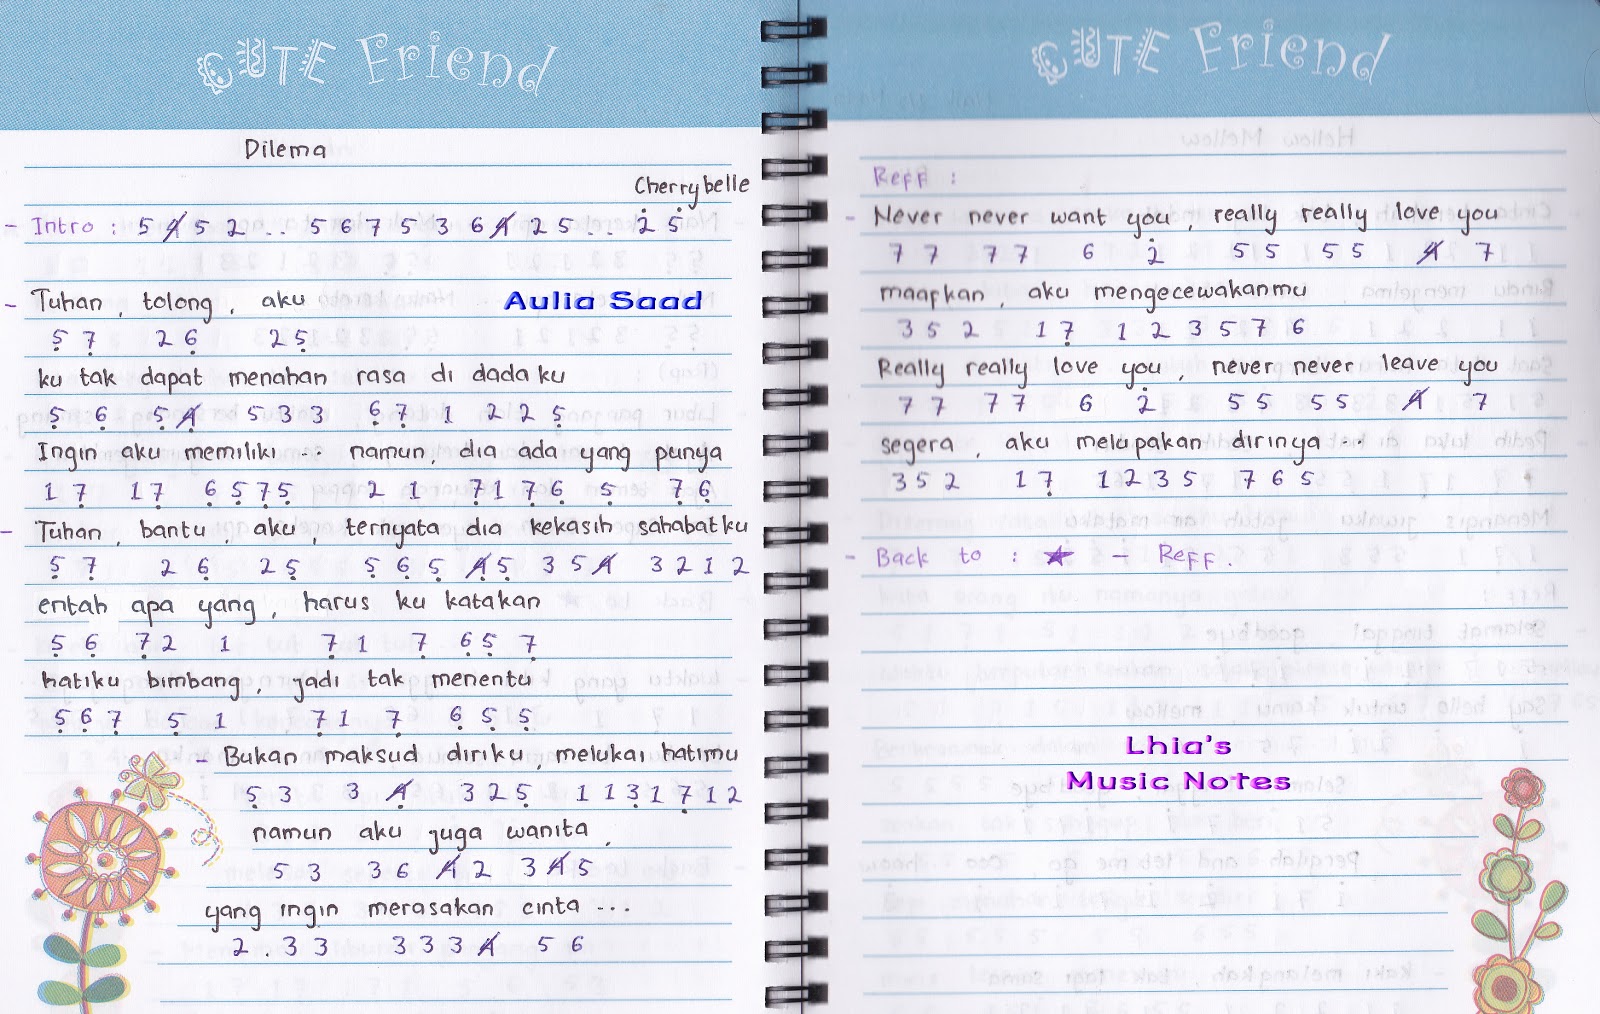 CUTE Friend
Dilema
Cherrybelle
- Intro : 5 4̸ 5 2 .. 5 6 7 5 3 6 4̸ 2 5 .. 2̇ 5̇
- Tuhan, tolong, aku
Aulia Saad
5̣ 7̣ 2 6̣ 2 5̣
ku tak dapat menahan rasa di dadaku
5̣ 6̣ 5̣ 4̸̣ 5 3 3 6̣ 7̣ 1 2 2 5̣
Ingin aku memiliki ... namun, dia ada yang punya
1 7̣ 1 7̣ 6̣ 5̣ 7̣ 5̣ 2 1 7̣ 1 7̣ 6̣ 5̣ 7̣ 6̣
- Tuhan, bantu, aku, ternyata dia kekasih sahabatku
5̣ 7̣ 2 6̣ 2 5̣ 5̣ 6̣ 5̣ 4̸̣ 5̣ 3 5 4̸ 3 2 1 2
entah apa yang, harus ku katakan
5̣ 6̣ 7̣ 2 1 7̣ 1 7̣ 6̣ 5̣ 7̣
hatiku bimbang, jadi tak menentu
5̣ 6̣ 7̣ 5̣ 1 7̣ 1 7̣ 6̣ 5̣ 5̣
- Bukan maksud diriku, melukai hatimu
5̣ 3 3 4̸̣ 3 2 5̣ 1 1 3̣ 1 7̣ 1 2
namun aku juga wanita,
5 3 3 6 4̸ 2 3 4̸ 5
yang ingin merasakan cinta ...
2 . 3 3 3 3 3 4̸ 5 6
CUTE Friend
Reff :
- Never never want you, really really love you
7 7 7 7 6 2̇ 5 5 5 5 4̸ 7
maafkan, aku mengecewakanmu
3 5 2 1 7̣ 1 2 3 5 7 6
Really really love you, never never leave you
7 7 7 7 6 2̇ 5 5 5 5 4̸ 7
segera, aku melupakan dirinya ...
3 5 2 1 7̣ 1 2 3 5 7 6 5
- Back to : ★ - Reff.
Lhia's
Music Notes